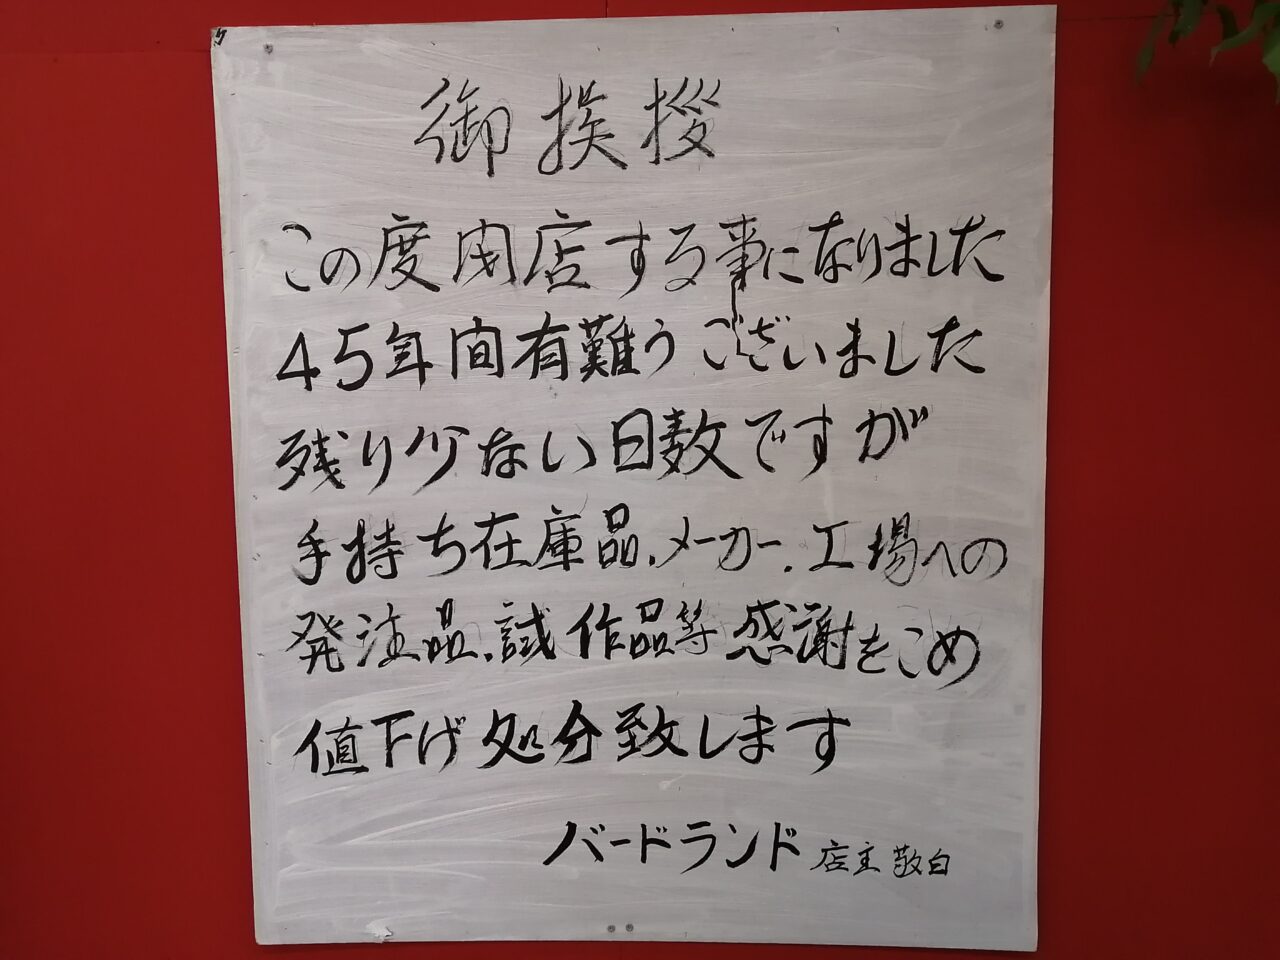 御挨拶
この度閉店する事になりました
45年間有難うございました
残り少ない日数ですが
手持ち在庫品.メーカー.工場への
発注品.試作品等感謝をこめ
値下げ処分致します
バードランド 店主敬白